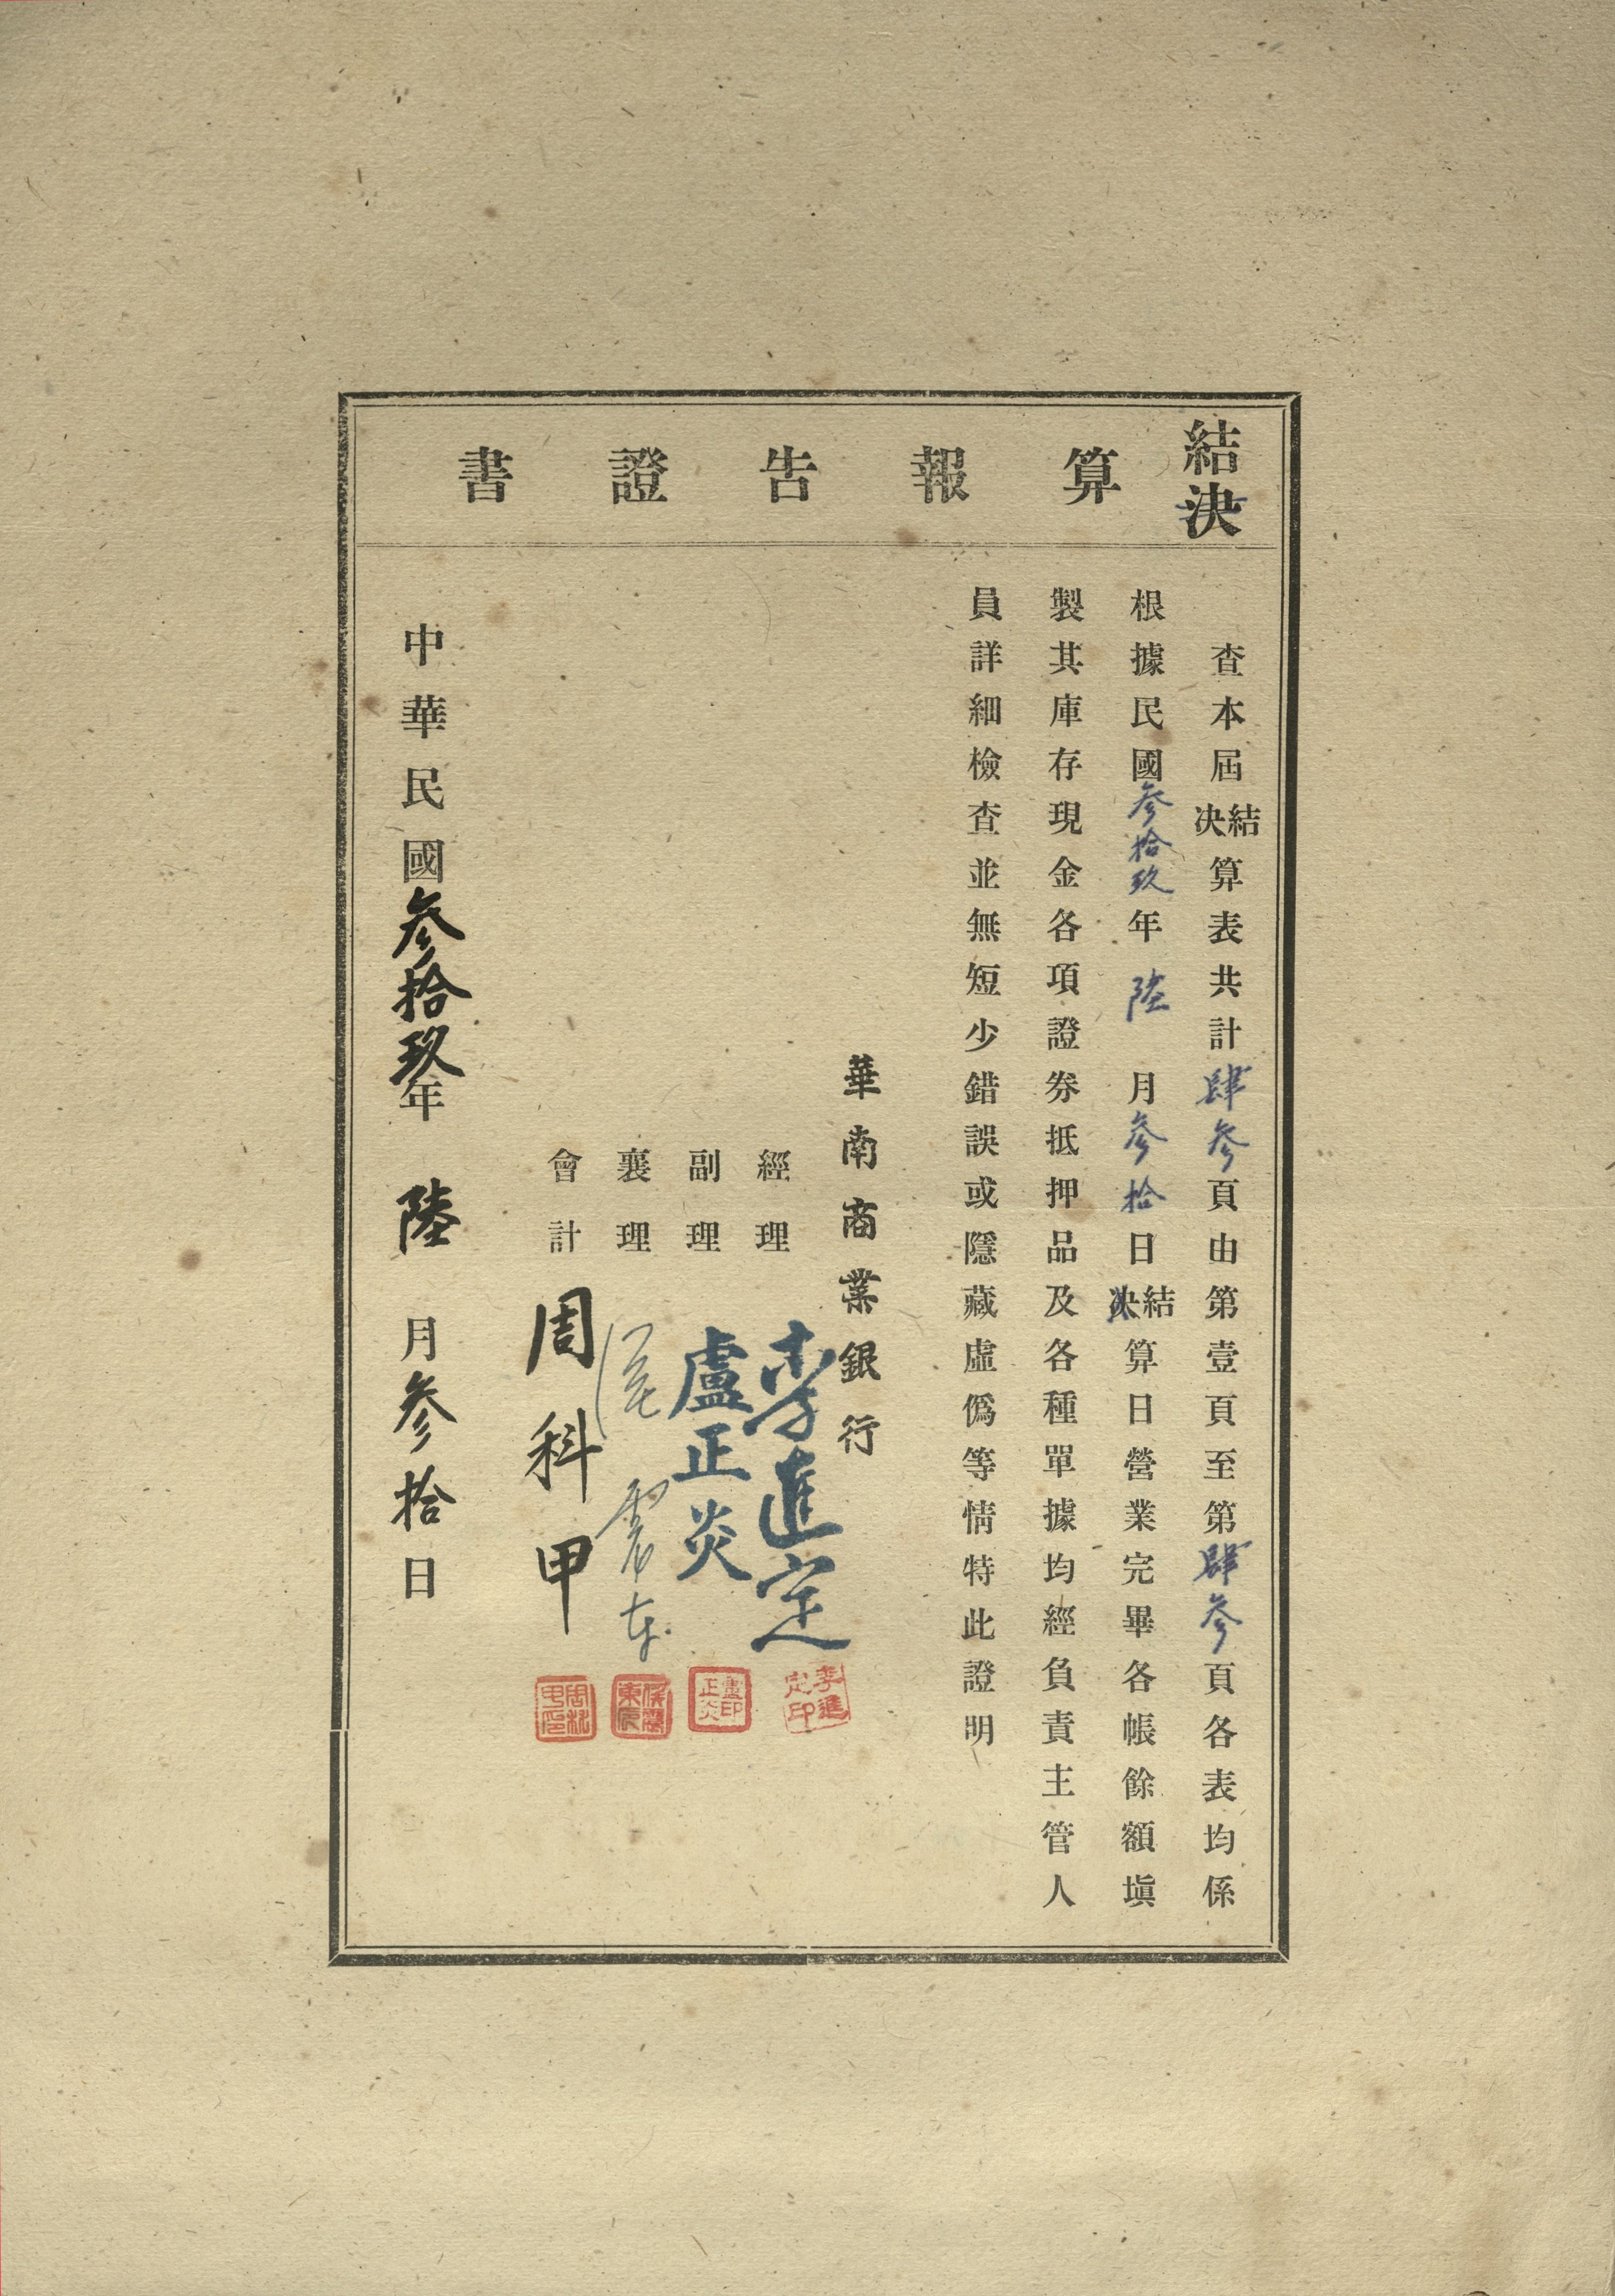 結決算報告證書
查本屆結決算表共計肆參頁由第壹頁至第肆參頁各表均係
根據民國參拾玖年陸月參拾日結決算日營業完畢各帳餘額塡
製其庫存現金各項證券抵押品及各種單據均經負責主管人
員詳細檢查並無短少錯誤或隱藏虛僞等情特此證明
華南商業銀行
經理 李進定
副理 盧正炎
襄理
會計 周科甲
李進定印
中華民國參拾玖年陸月參拾日